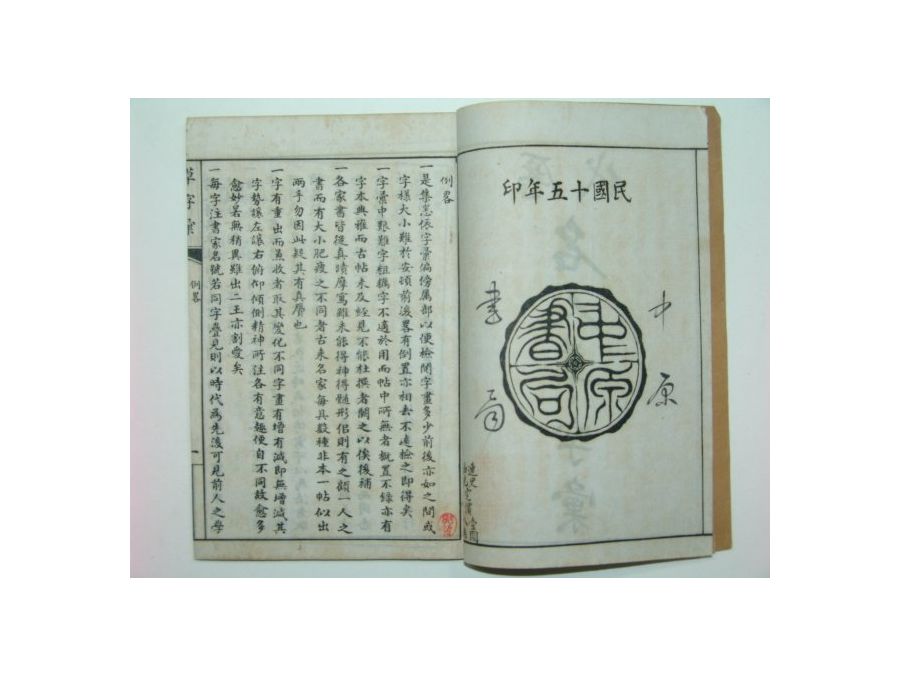 民國十五年印
中原
書局
中原書局
例畧
一是集悉依字彙偏傍属部以便檢閱字畫多少前後亦如之間或
字樣大小難於安頓前後畧有倒置亦相去不遠檢之即得矣
一字彙中艱難字粗糲字不適於用而帖中所無者概置不錄亦有
字本典雅而古帖未及經見不能杜撰者闕之以俟後補
一各家書皆從真蹟摩寫雖未能得神得髓形侣則有之顧一人之
書而有大小肥瘦之不同者古来名家每具数種非本一帖似出
兩手勿因此疑其有真贋也
一字有重出而蒹收者取其變化不同字畫有增有減即無增減其
字勢縁左讓右俯仰傾側精神所注各有意趣便自不同故愈多
愈妙若無精異雖出二王亦割愛矣
一每字注書家名號若同字疊見則以時代為先後可見前人之學
草字彙
例畧
一